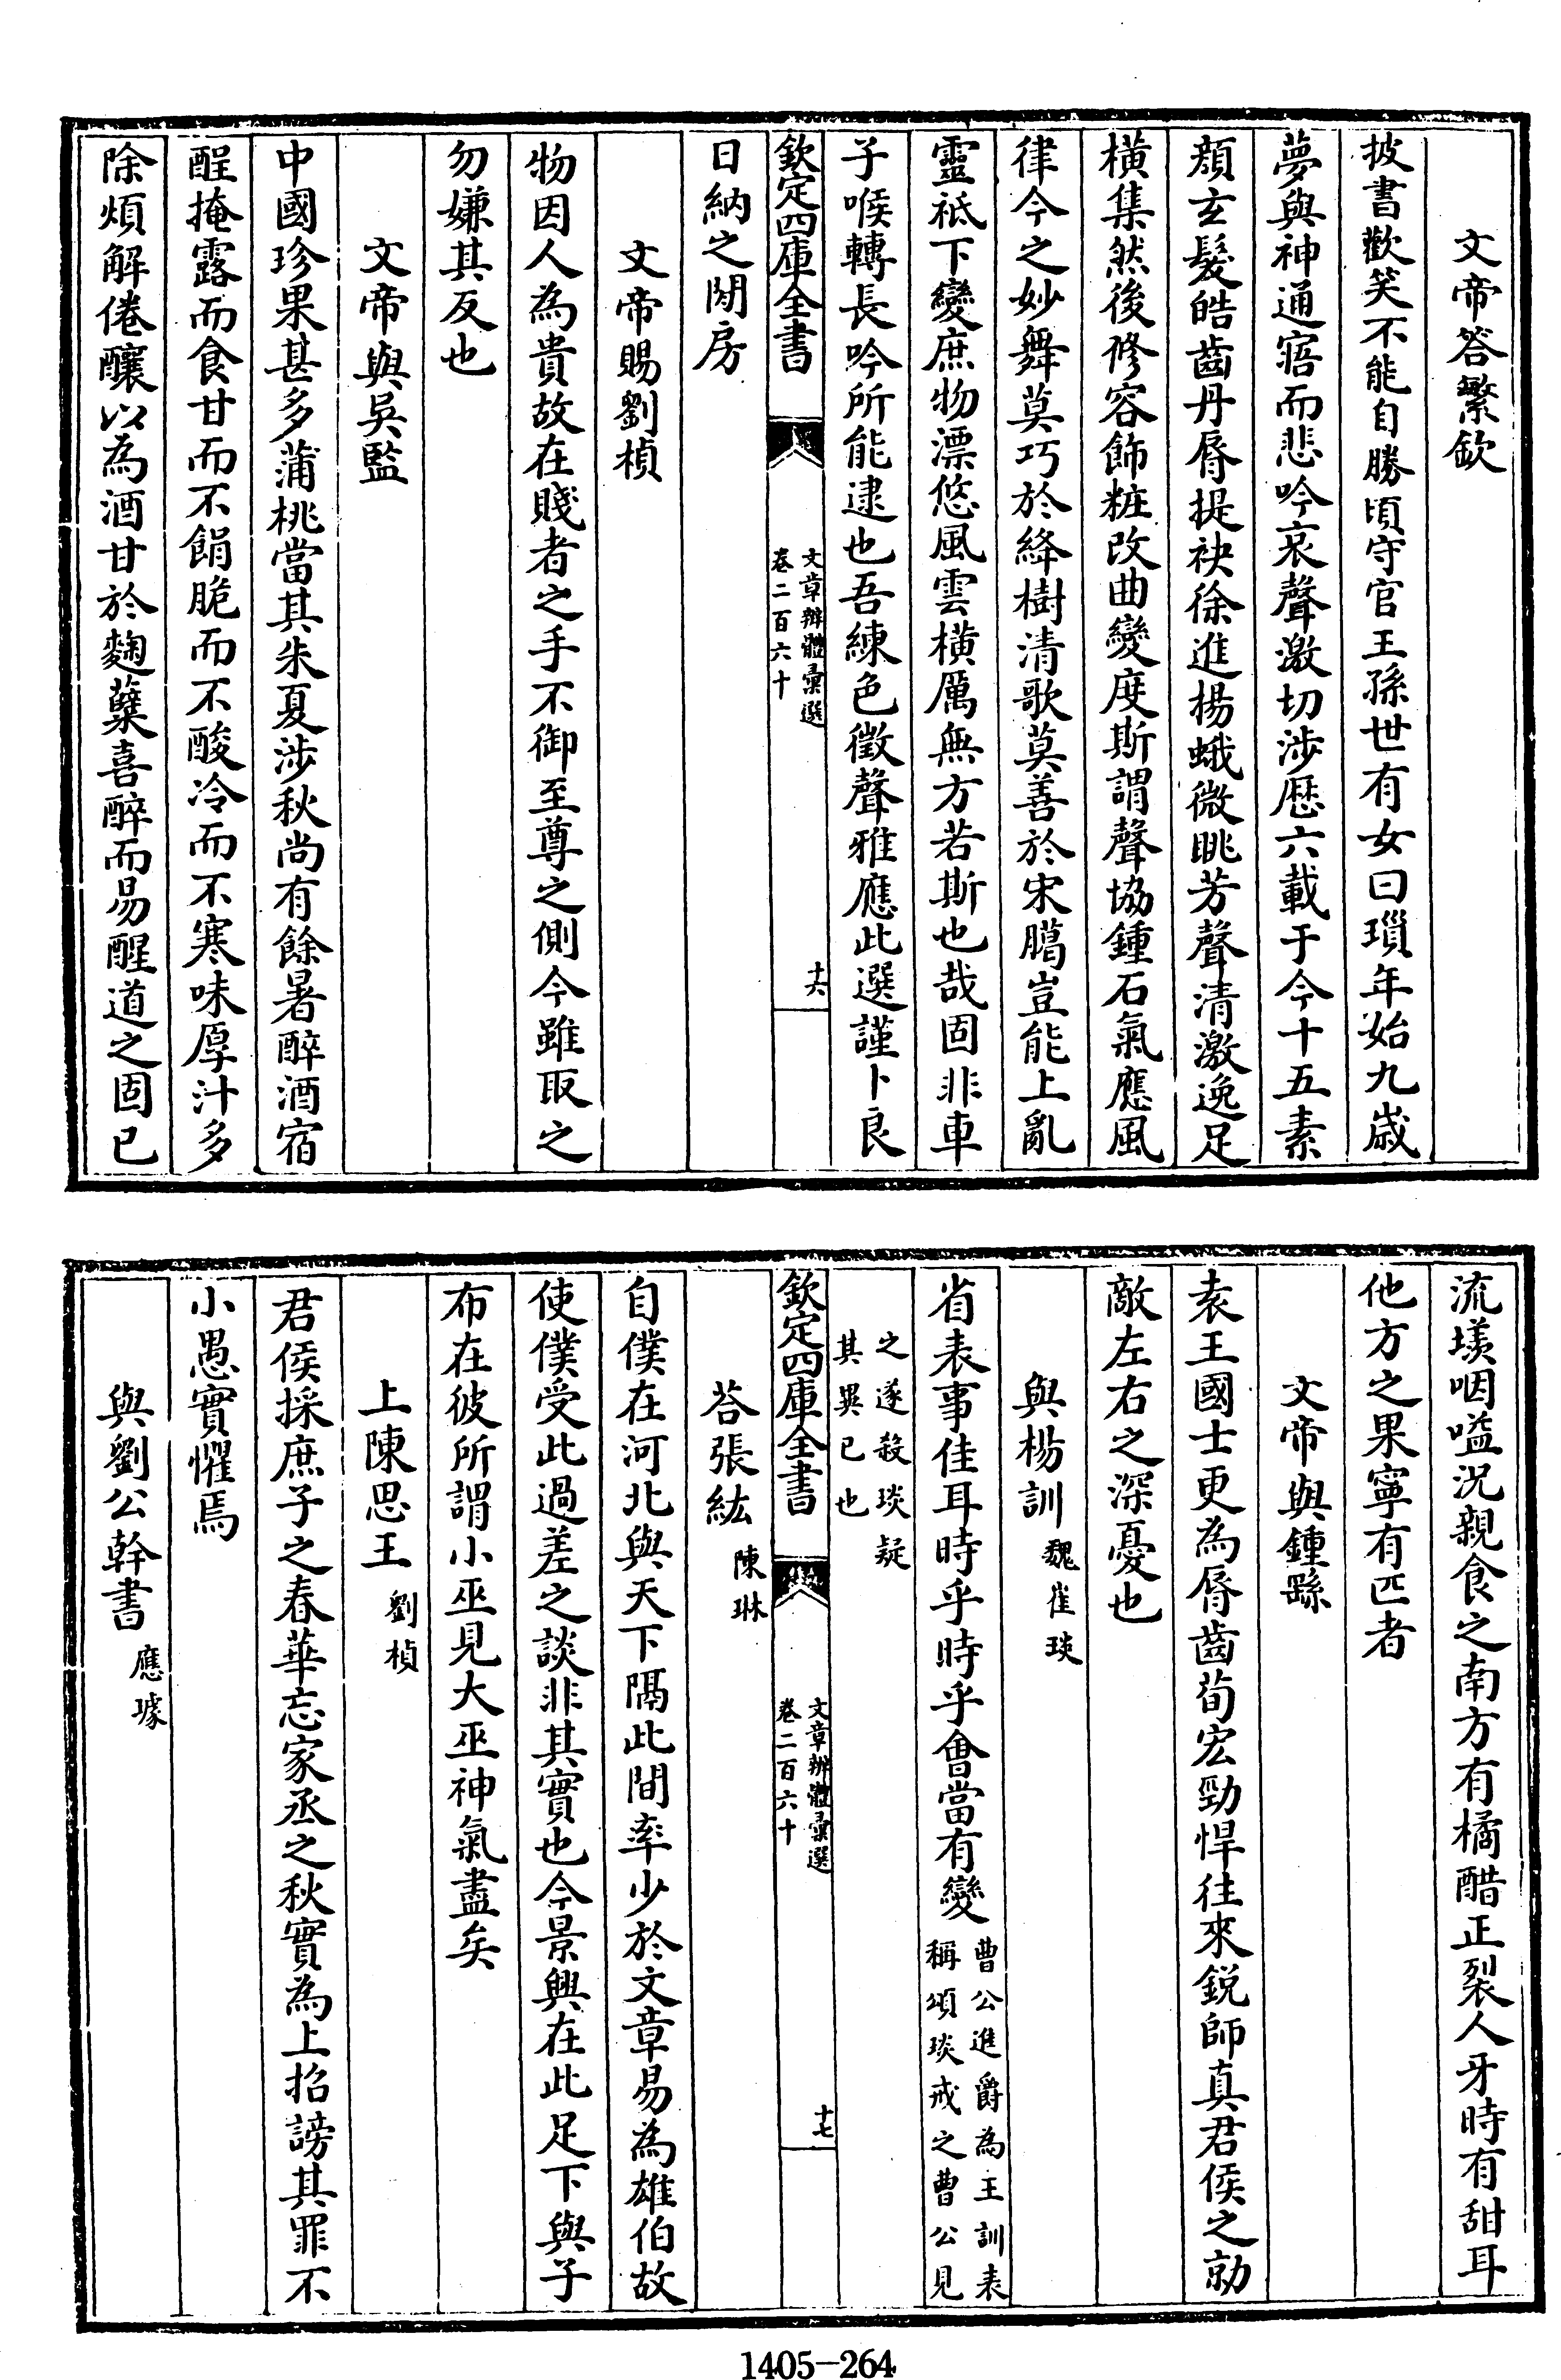 文帝答繁欽
披書歡笑不能自勝頃守官王孫世有女曰瑣年始九歲
夢與神通寤而悲吟哀聲激切涉歷六載于今十五素
顔玄髮皓齒丹脣提袂徐進揚蛾微眺芳聲清激逸足
橫集然後修容飾粧改曲變度斯謂聲協鍾石氣應風
律今之妙舞莫巧於絳樹清歌莫善於宋臈豈能上亂
靈祗下變庶物漂悠風雲橫厲無方若斯也哉固非車
子喉轉長吟所能逮也吾練色徵聲雅應此選謹卜良
欽定四庫全書
文章辨體彙選
卷二百六十
十六
日納之閒房
文帝賜劉楨
物因人為貴故在賤者之手不御至尊之側今雖取之
勿嫌其反也
文帝與吳監
中國珍果甚多蒲桃當其朱夏涉秋尚有餘暑醉酒宿
酲掩露而食甘而不餶脆而不酸冷而不寒味厚汁多
除煩解倦釀以為酒甘於麴糵喜醉而易醒道之固已
流墴咽嗌況親食之南方有橘醋正裂人牙時有甜耳
他方之果寧有匹者
文帝與鍾繇
袁王國士更為脣齒荀宏勁悍往來銳師真君侯之勍
敵左右之深憂也
與楊訓 魏崔琰
省表事佳耳時乎時乎會當有變 曹公進爵為王訓表
稱頌琰戒之曹公見
之遂殺琰疑
其異已也
欽定四庫全書
文章辨體彙選
卷二百六十
十七
荅張紘 陳琳
自僕在河北與天下隔此間率少於文章易為雄伯故
使僕受此過差之談非其實也今景興在此足下與子
布在彼所謂小巫見大巫神氣盡矣
上陳思王 劉楨
君侯採庶子之春華忘家丞之秋實為上招謗其罪不
小愚實懼焉
與劉公幹書 應璩
1405-264